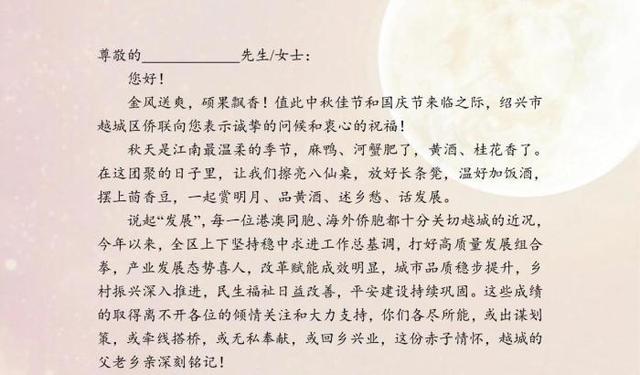 尊敬的____________先生/女士：
您好！
金风送爽，硕果飘香！值此中秋佳节和国庆节来临之际，绍兴市
越城区侨联向您表示诚挚的问候和衷心的祝福！
秋天是江南最温柔的季节，麻鸭、河蟹肥了，黄酒、桂花香了。
在这团聚的日子里，让我们擦亮八仙桌，放好长条凳，温好加饭酒，
摆上茴香豆，一起赏明月、品黄酒、述乡愁、话发展。
说起“发展”，每一位港澳同胞、海外侨胞都十分关切越城的近况，
今年以来，全区上下坚持稳中求进工作总基调，打好高质量发展组合
拳，产业发展态势喜人，改革赋能成效明显，城市品质稳步提升，乡
村振兴深入推进，民生福祉日益改善，平安建设持续巩固。这些成绩
的取得离不开各位的倾情关注和大力支持，你们各尽所能，或出谋划
策，或牵线搭桥，或无私奉献，或回乡兴业，这份赤子情怀，越城的
父老乡亲深刻铭记！